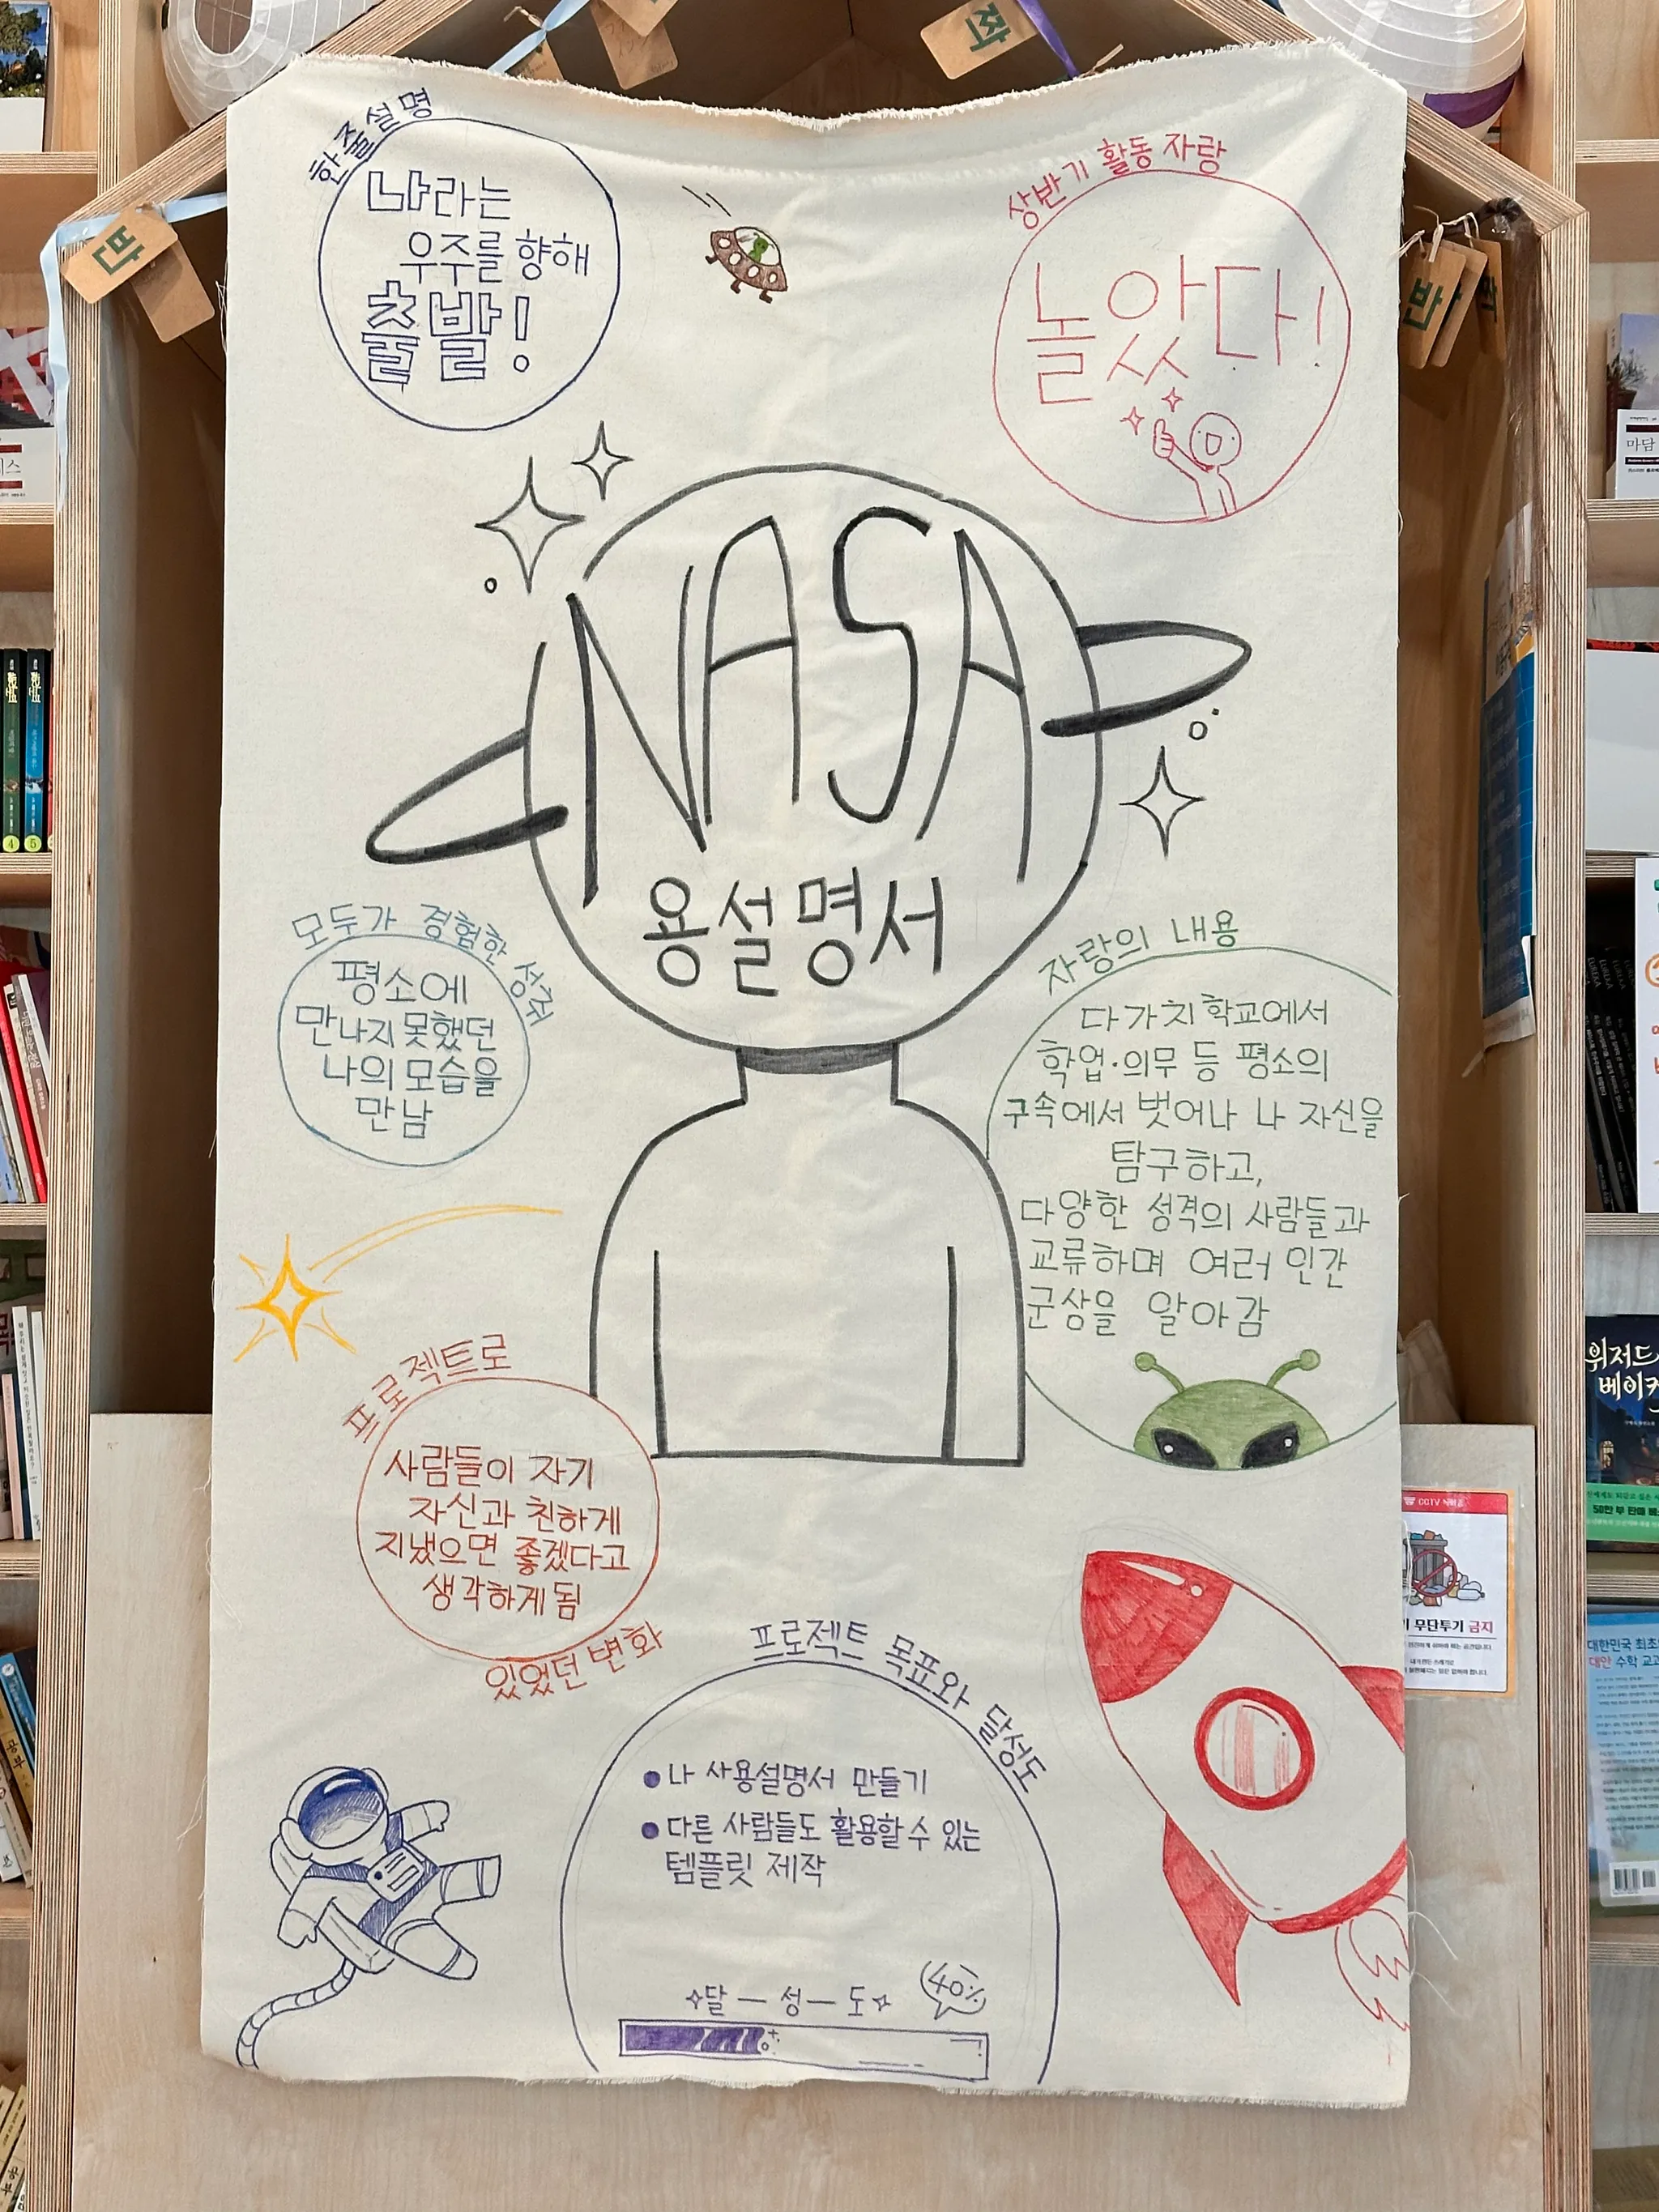 한 줄 설명
나라는
우주를 향해
출발!
상반기 활동 자랑
놀았다!
NASA
용설명서
모두가 경험한 성취
평소에
만나지 못했던
나의 모습을
만남
자랑의 내용
다가치학교에서
학업·의무 등 평소의
구속에서 벗어나 나 자신을
탐구하고,
다양한 성격의 사람들과
교류하며 여러 인간
군상을 알아감
프로젝트로
사람들이 자기
자신과 친하게
지냈으면 좋겠다고
생각하게 됨
있었던 변화
프로젝트 목표와 달성도
● 나 사용설명서 만들기
● 다른 사람들도 활용할 수 있는
템플릿 제작
달 — 성 — 도
40%
반
작
반
4
5
마담
위저드
베이커
50만 부 판매
CCTV
무단투기 금지
대한민국 최초
대안 수학 교과